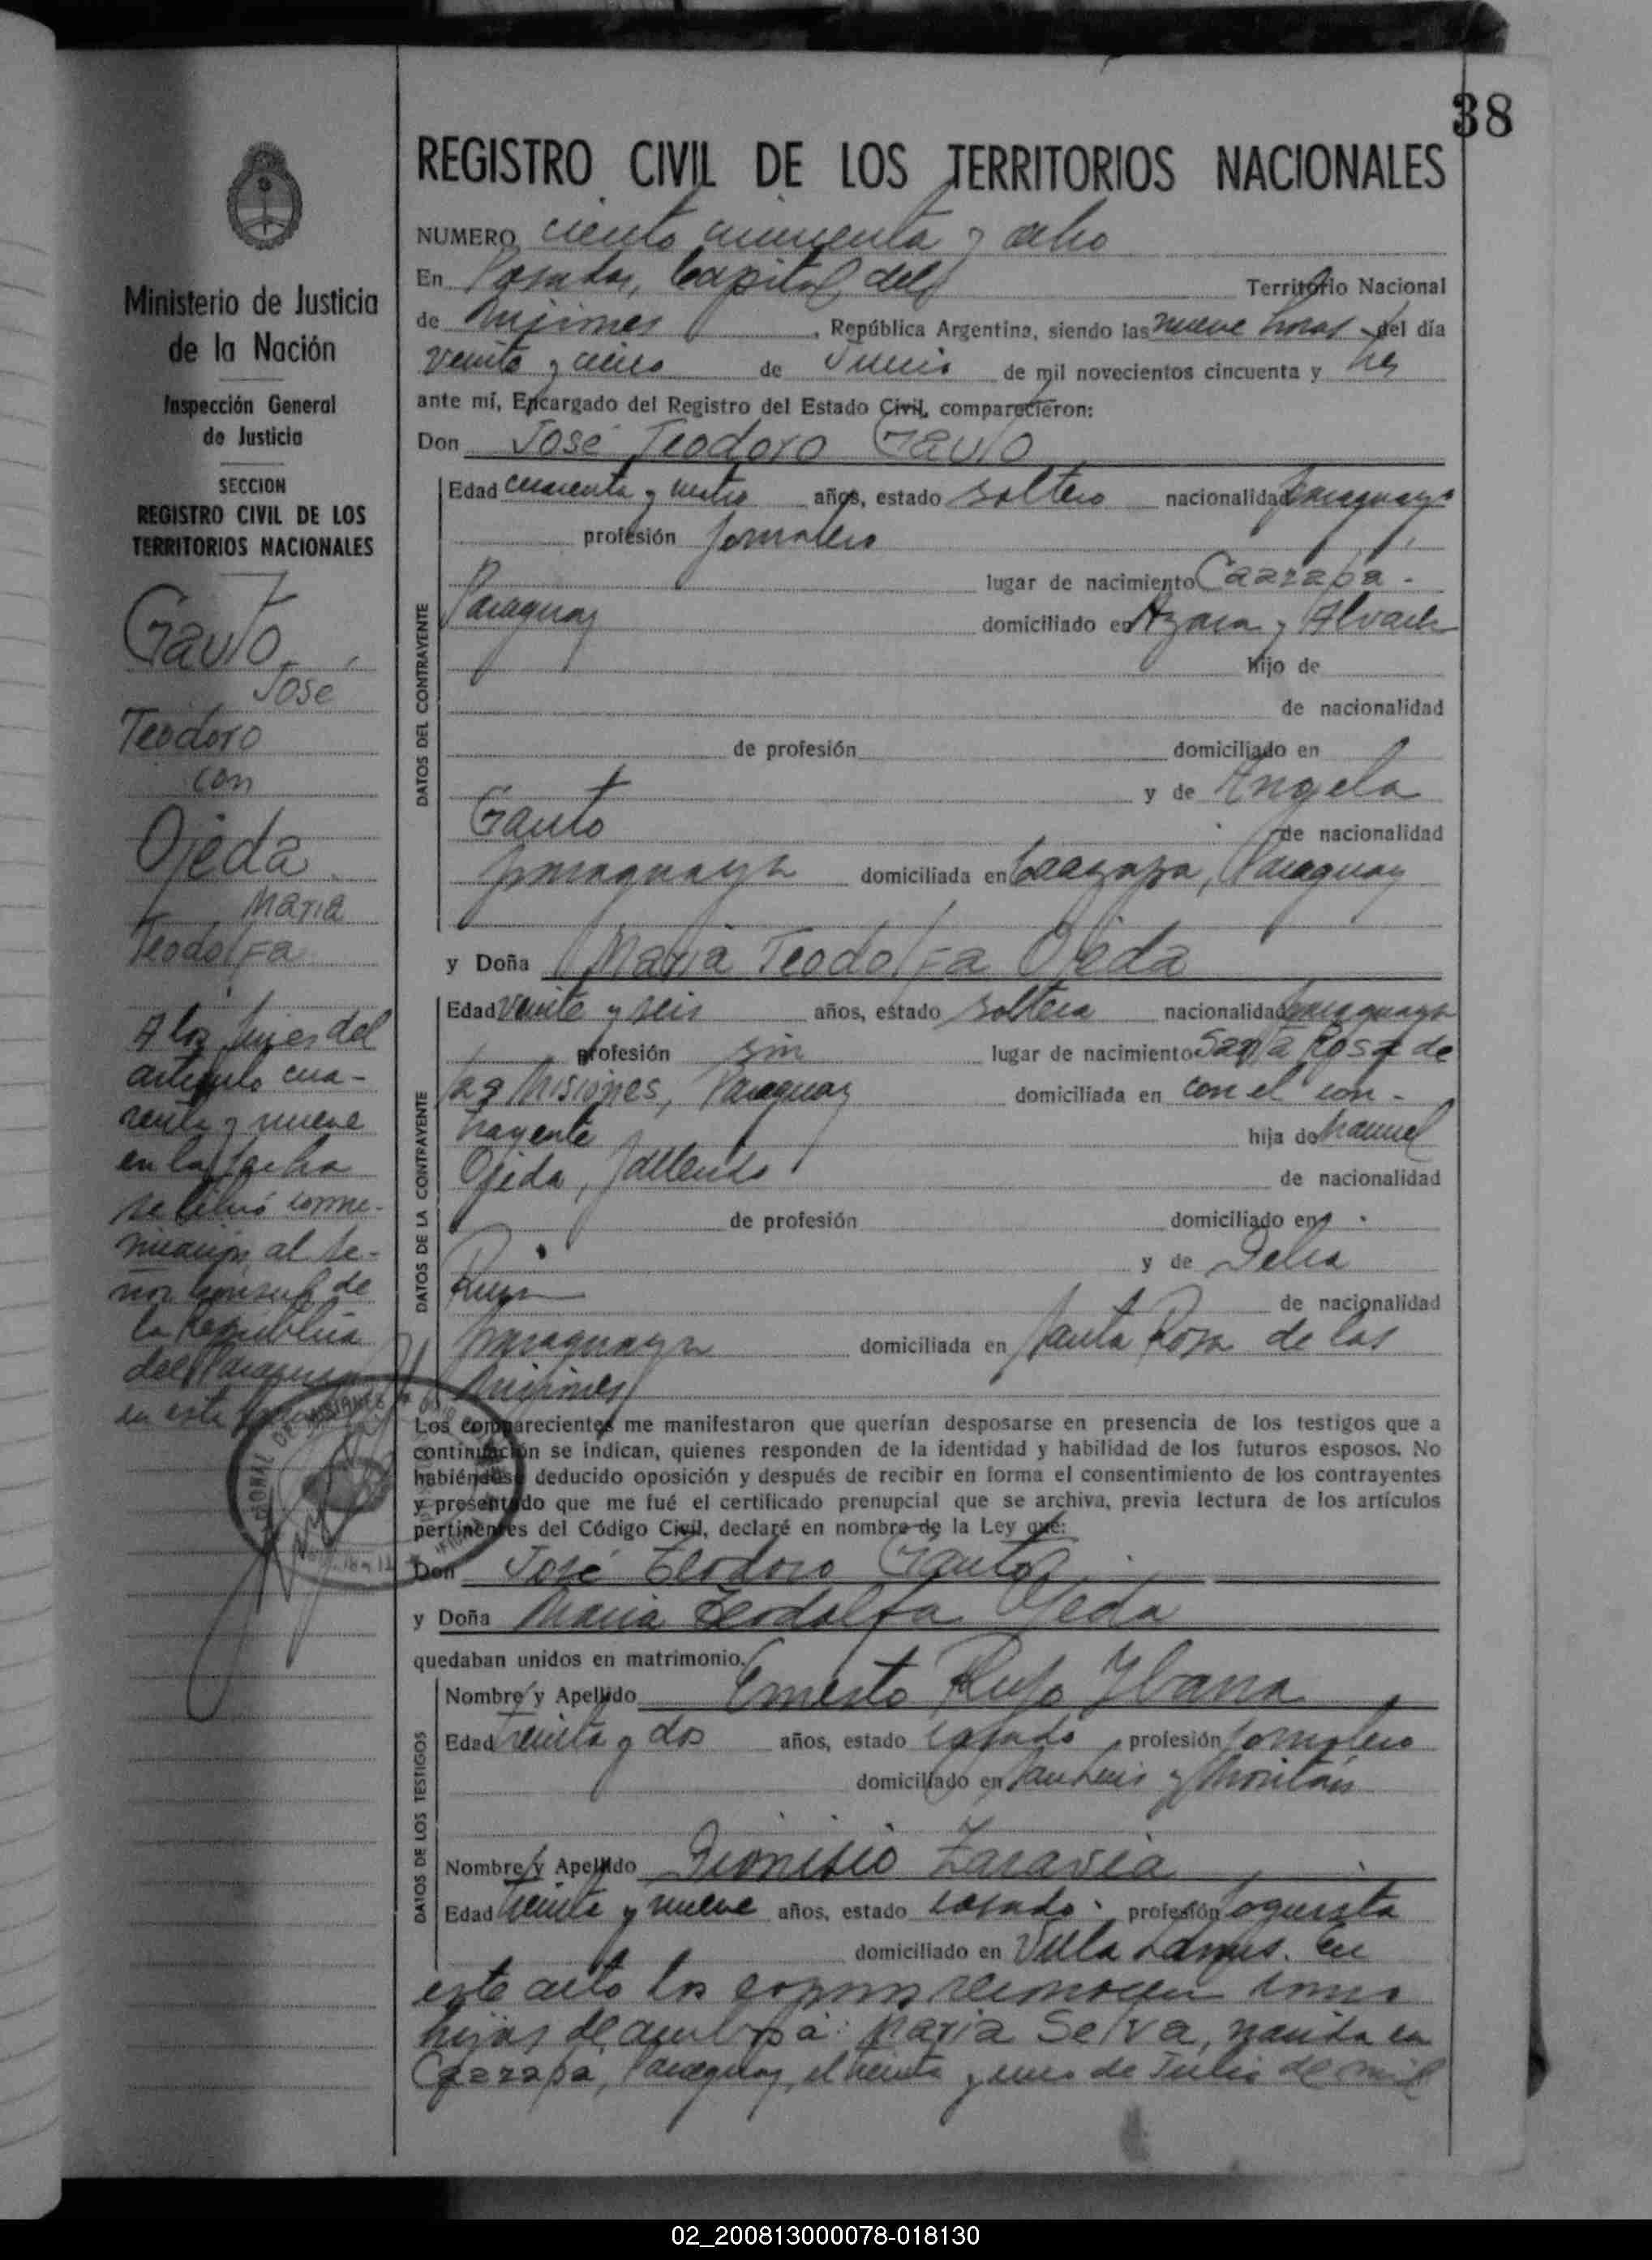 38
REGISTRO CIVIL DE LOS TERRITORIOS NACIONALES
NUMERO ciento cincuenta y ocho
En Posadas, Capital del Territorio Nacional
de Misiones, República Argentina, siendo las nueve horas del día
veinte y cinco de Junio de mil novecientos cincuenta y tres
ante mí, Encargado del Registro del Estado Civil, comparecieron:
Don José Teodoro Gauto
DATOS DEL CONTRAYENTE
Edad cuarenta y cuatro años, estado soltero nacionalidad paraguayo
profesión jornalero
lugar de nacimiento Caazapá -
Paraguay domiciliado en Azara y Alvear
hijo de
de nacionalidad
de profesión domiciliado en
y de Angela
Gauto de nacionalidad
paraguaya domiciliada en Caazapa, Paraguay
y Doña Maria Teodolfa Ojeda
DATOS DE LA CONTRAYENTE
Edad veinte y seis años, estado soltera nacionalidad paraguaya
profesión sin lugar de nacimiento Santa Rosa de
las Misiones, Paraguay domiciliada en con el con-
trayente hija de Manuel
Ojeda, fallecido de nacionalidad
de profesión domiciliado en
y de Delia
de nacionalidad
paraguaya domiciliada en Santa Rosa de las
Misiones
Los comparecientes me manifestaron que querían desposarse en presencia de los testigos que a
continuación se indican, quienes responden de la identidad y habilidad de los futuros esposos. No
habiéndose deducido oposición y después de recibir en forma el consentimiento de los contrayentes
y presentado que me fué el certificado prenupcial que se archiva, previa lectura de los artículos
pertinentes del Código Civil, declaré en nombre de la Ley que:
Don José Teodoro Gauto
y Doña Maria Teodolfa Ojeda
quedaban unidos en matrimonio.
DATOS DE LOS TESTIGOS
Nombre y Apellido Ernesto Rufo
Edad treinta y dos años, estado casado profesión jornalero
domiciliado en San Luis y
Nombre y Apellido Dionisio Zaravia
Edad treinta y nueve años, estado casado profesión foguista
domiciliado en Villa Lanus. En
este acto los esposos reconocen como
hijos de ambos a: Maria Selva, nacida en
Caazapá, Paraguay, el treinta y uno de Julio de mil
Ministerio de Justicia
de la Nación
Inspección General
de Justicia
SECCION
REGISTRO CIVIL DE LOS
TERRITORIOS NACIONALES
Gauto
José
Teodoro
con
Ojeda
Maria
Teodolfa
A los fines del
artículo cua-
renta y nueve
en la fecha
se libró comu-
nicación al Se-
ñor Consul de
la República
del Paraguay
en esta
02_200813000078-018130